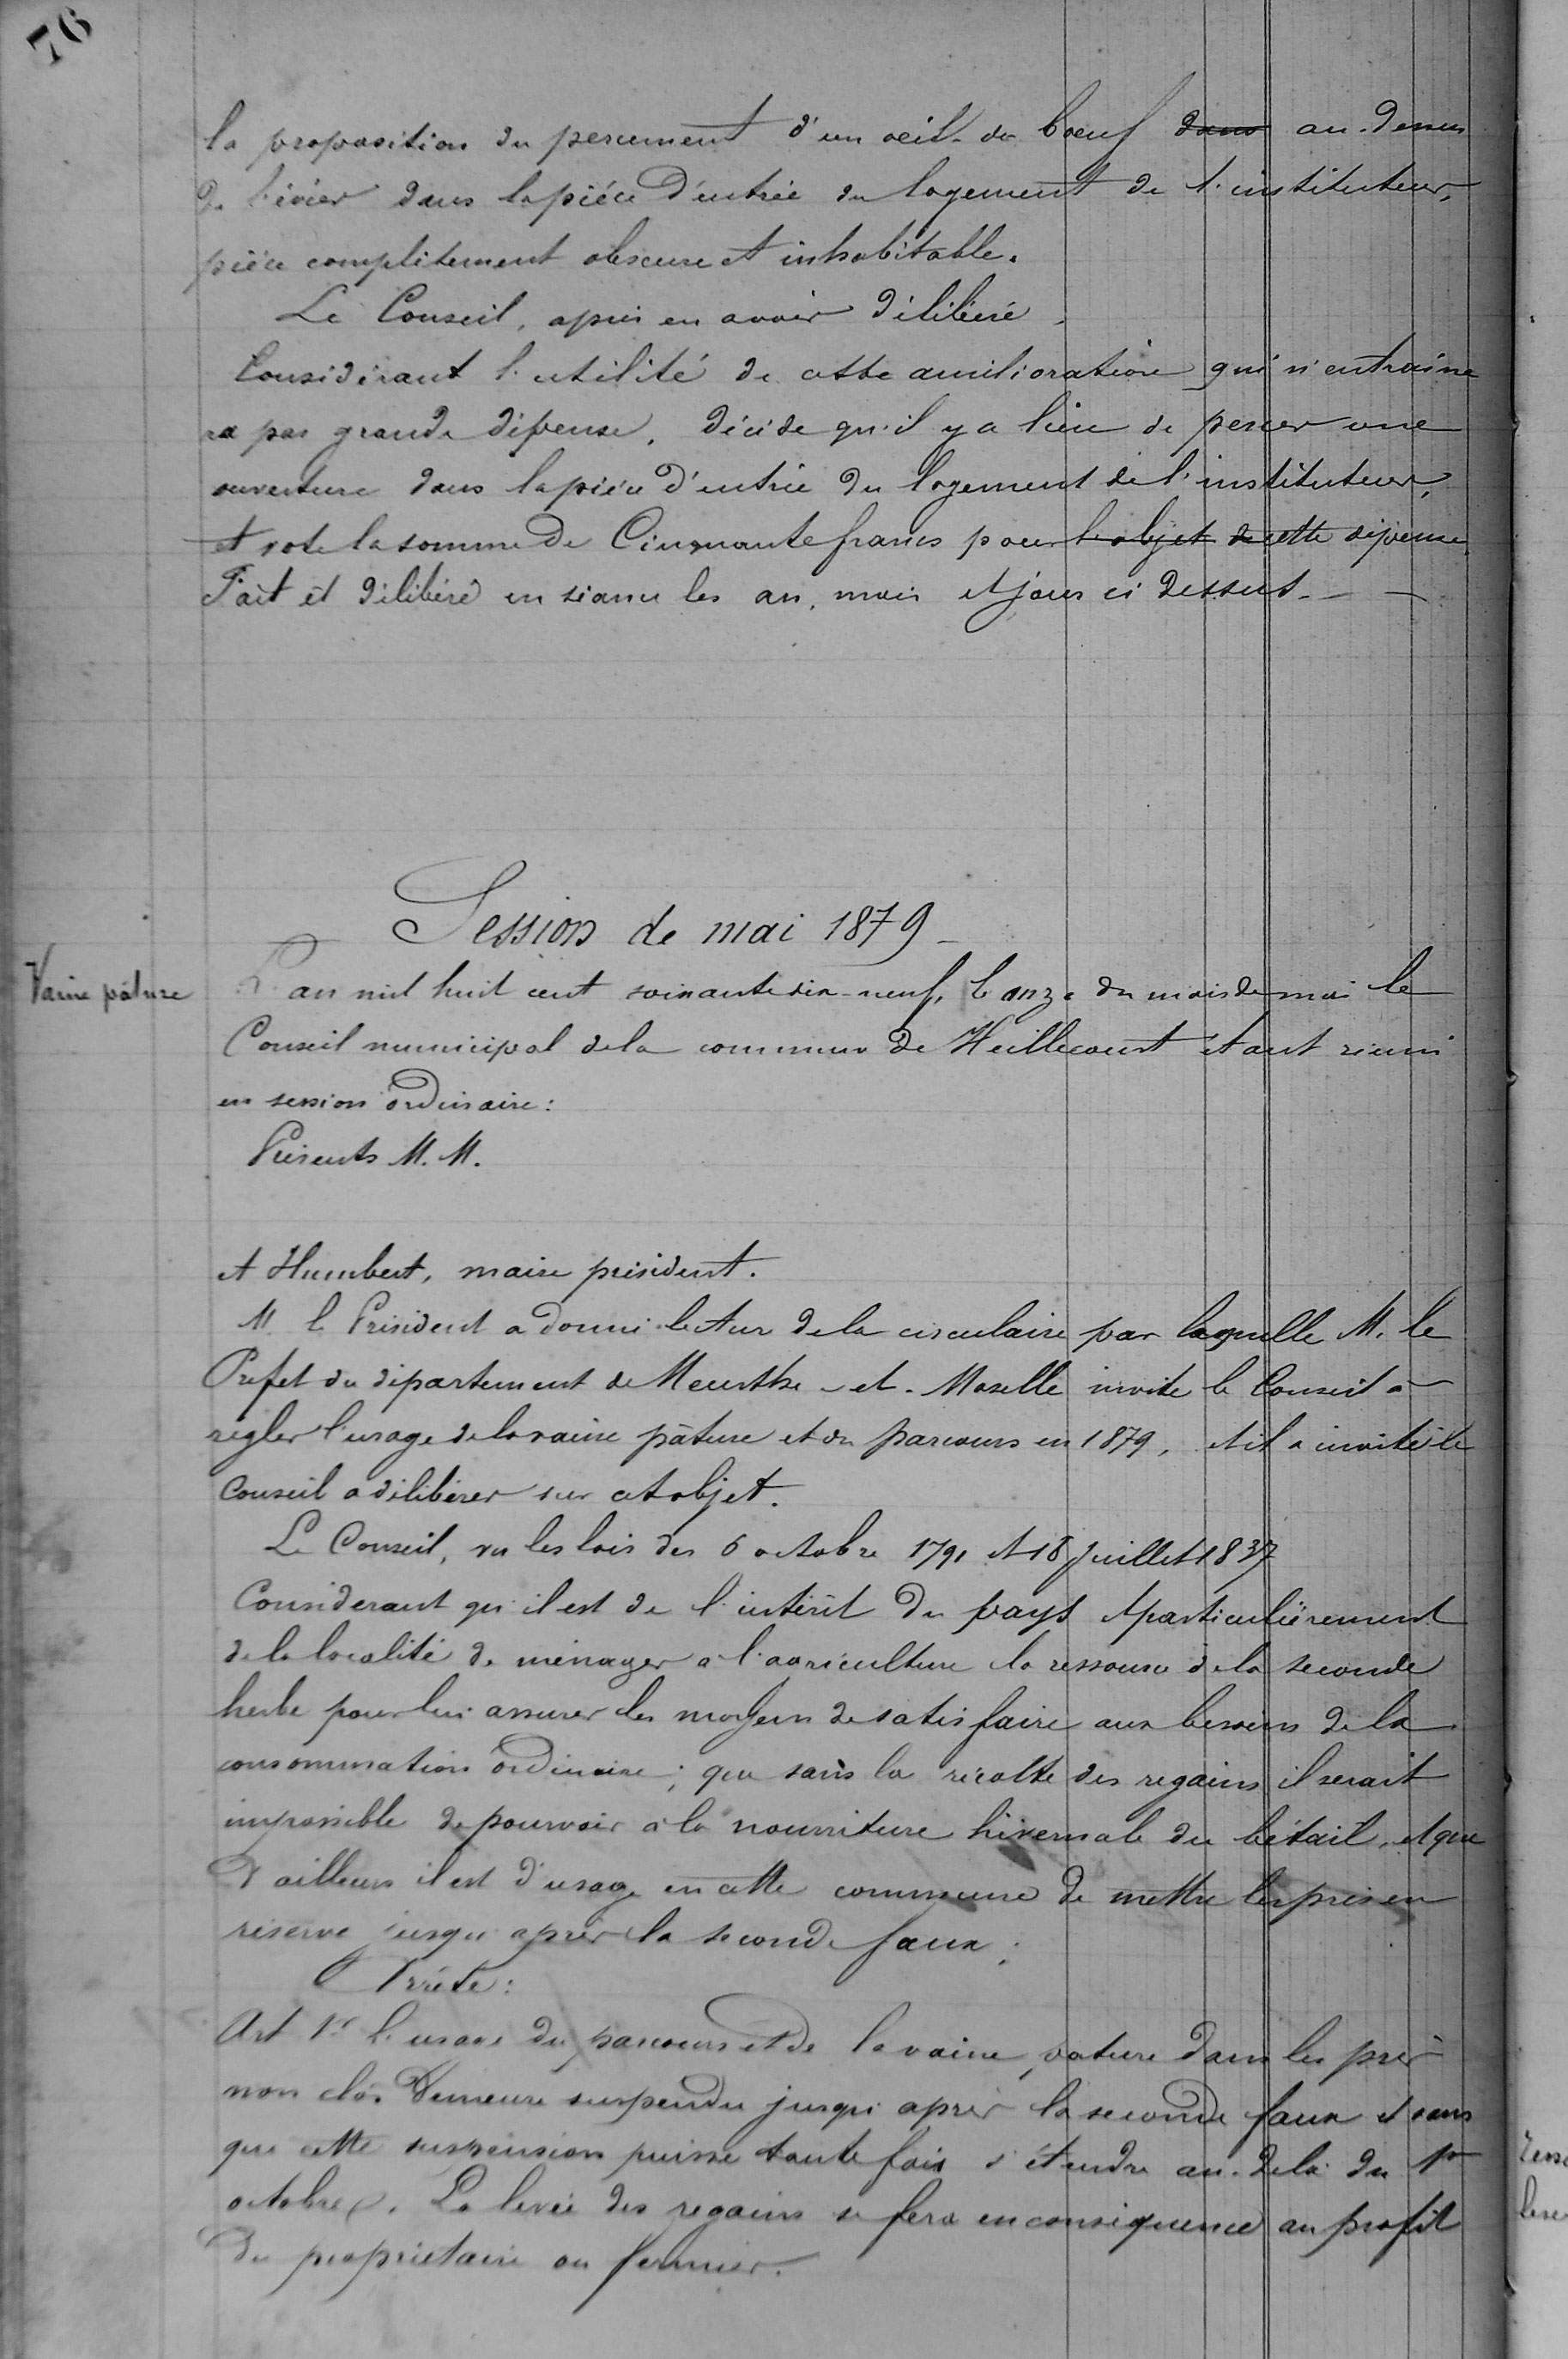 76
la proposition du percement d'un oeil-de boeuf dans au-dessus
de l'évier dans la pièce d'entrée du logement de l'instituteur,
pièce complètement obscure et inhabitable.
Le Conseil, après en avoir délibéré,
Considérant l'utilité de cette amélioration qui n'entraine
ra pas grande dépense, décide qu'il y a lieu de percer une
ouverture dans la pièce d'entrée du logement de l'instituteur,
et vote la somme de Cinquante francs pour l'objet de cette dépense.
Fait et délibéré en séance les an, mois et jour ci dessus.
Session de mai 1879
Vaine pâture
L'an mil huit cent soixante dix-neuf, le onze du mois de mai le
Conseil municipal de la commune de Heillecourt étant réuni
en session ordinaire:
Présents M. M.
et Humbert, maire président.
M. le Président a donné lecture de la circulaire par laquelle M. le
Préfet du département de Meurthe-et-Moselle invite le Conseil à
régler l'usage de la vaine pâture et du parcours en 1879, et il a invité le
Conseil a délibérer sur cet objet.
Le Conseil, vu les lois des 6 octobre 1791 et 18 Juillet 1837
Considerant qu'il est de l'intérêt du pays et particulièrement
de la localité de ménager a l'agriculture la ressource de la seconde
herbe pour lui assurer les moyens de satisfaire aux besoins de la
consommation ordinaire; que sans la récolte des regains il serait
impossible de pourvoir à la nourriture hivernale du bétail, et que
d'ailleurs il est d'usage en cette commune de mettre les prés en
réserve jusqu'après la seconde faux;
Arrête:
Art 1er l'usage du parcours et de la vaine pature dans les prés
non clos demeure suspendu jusqu'après la seconde faux et sans
que cette suspension puisse toute fois s'étendre au-delà du 1er
octobre. La levée des regains se fera en conséquence au profit
du propriétaire ou fermier.